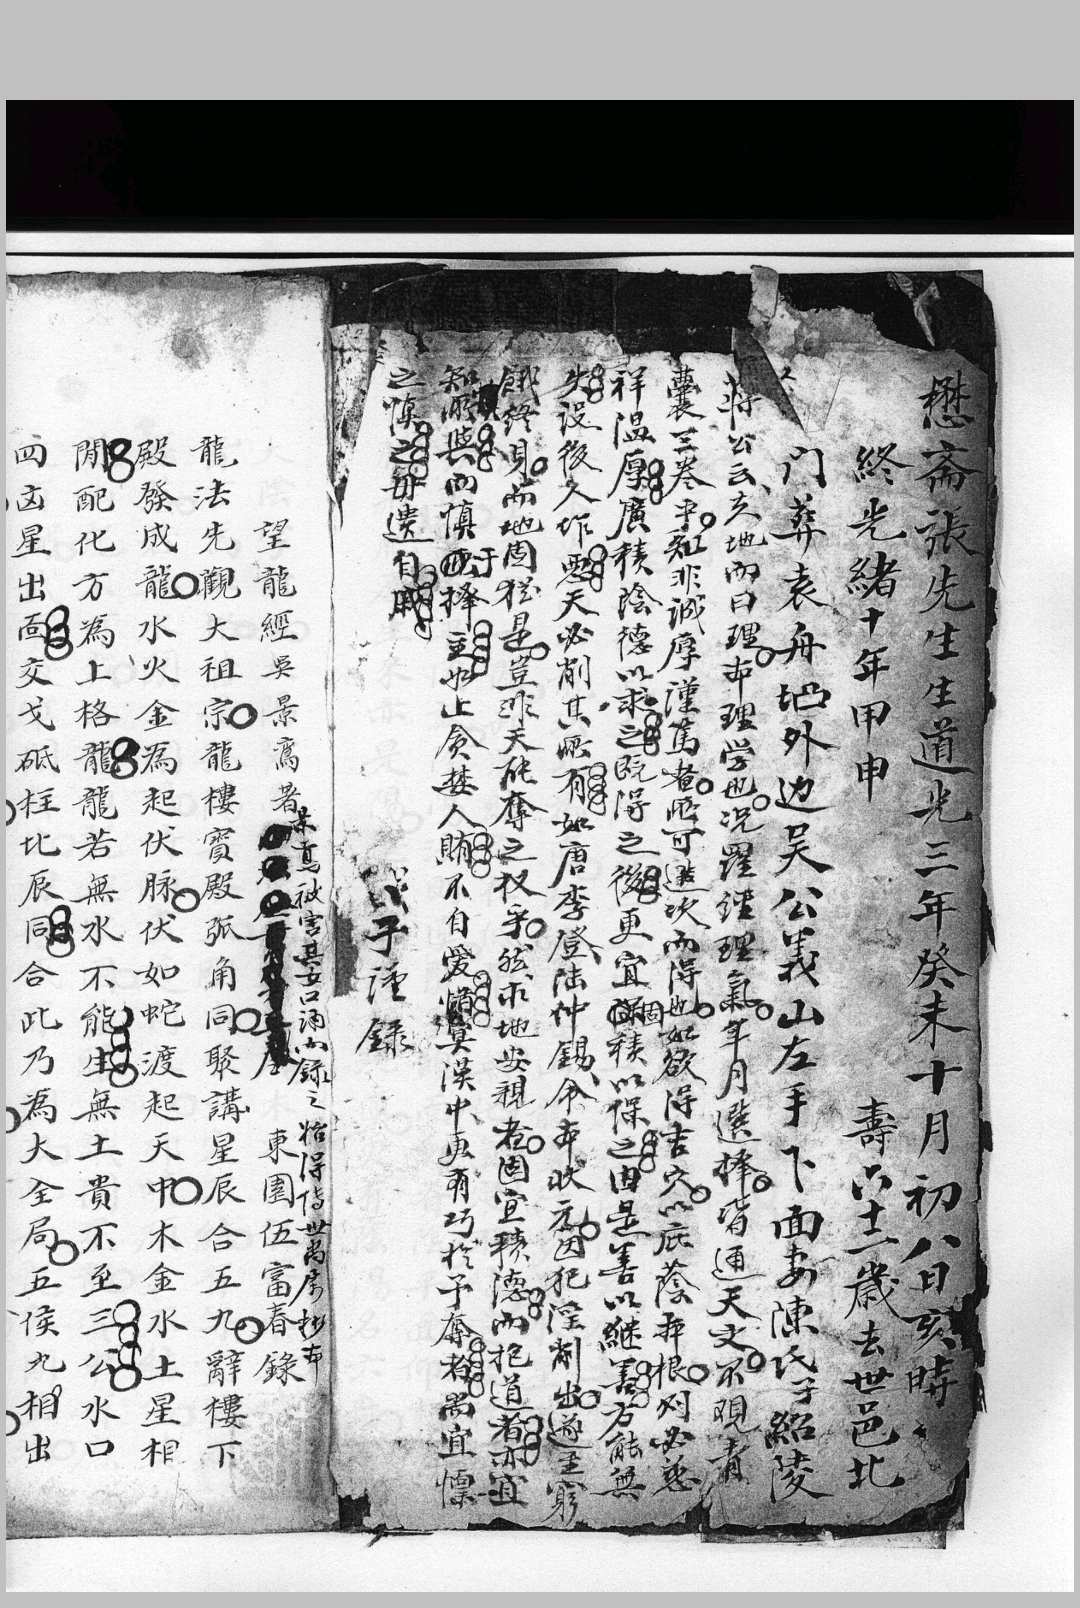 懋齋張先生生道光三年癸未十月初八日亥時
終光緒十年甲申 壽六十二歲去世邑北
门葬袁舟坳外边吴公義山左手下面妻陳氏子紹陵
蔣公云夫地而曰理亦理学也况巒理理氣年月選擇皆通天文不覌青
囊三卷乎知非誠厚謹篤者所可造次而得也如欲得吉穴以庇蔭本根则必慈
祥温厚廣積陰德以求之既得之後更宜積以保之由是善以継善方能無
失设後人作悪天必削其所有如唐李登陆仲錫余本状元因犯淫削出遂至窮
餓終身而地固犹是豈非天能奪之权乎然求地安親者固宜積德而抱道者亦宜
知所與而慎于擇主如止貪婪人賄不自愛惜冥漠中更有巧於予奪者尚宜懔
之慎之毋遺自戚
子謹録
望龍經吳景鸞著 東園伍富春錄
景鸞被害其女口诵录之始得传世
龍法先觀大祖宗龍樓寳殿弧角同聚講星辰合五九辭樓下
殿發成龍水火金為起伏脉伏如蛇渡起天中木金水土星相
間配化方為上格龍龍若無水不能生無土貴不至三公水口
四凶星出面交戈砥柱北辰同合此乃為大全局五侯九相出